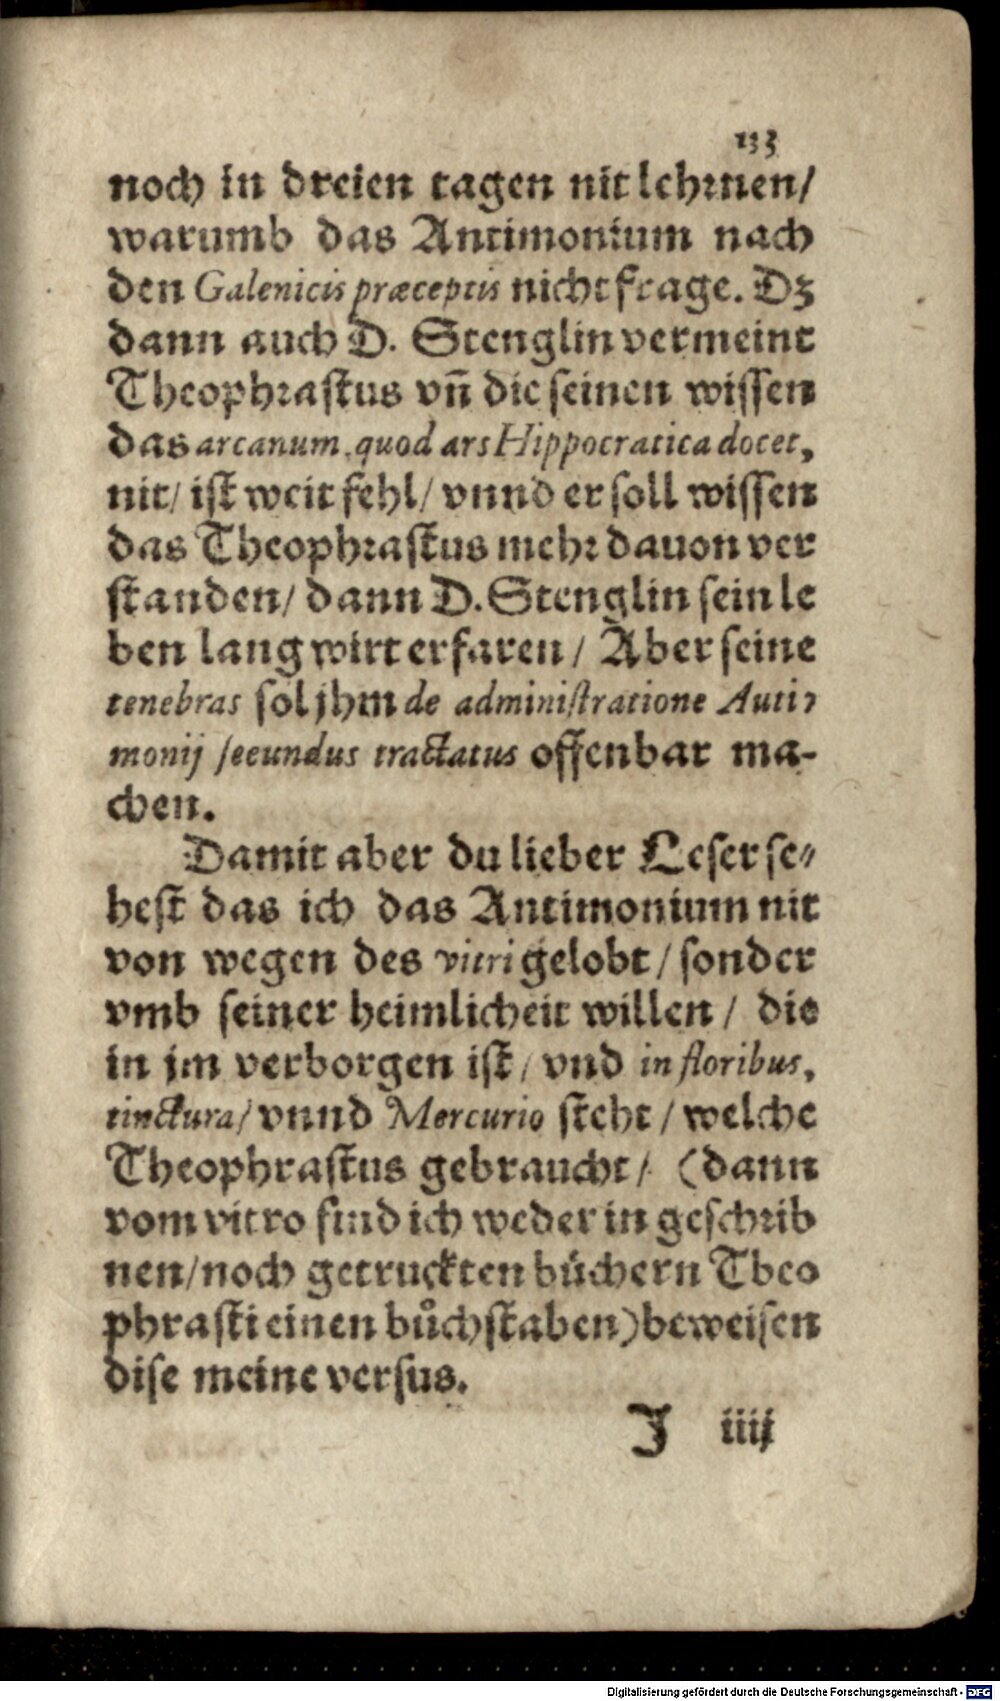 133
noch in dreien tagen nit lehrnen/
warumb das Antimonium nach
den Galenicis præceptis nicht frage. Dz
dann auch D. Stenglin vermeint
Theophrastus vñ die seinen wissen
das arcanum, quod ars Hippocratica docet,
nit/ ist weit fehl/ vnnd er soll wissen
das Theophrastus mehr dauon ver
standen/ dann D. Stenglin sein le
ben lang wirt erfaren/ Aber seine
tenebras sol jhm de administratione Auti-
monij secundus tractatus offenbar ma-
chen.
Damit aber du lieber Leser se-
hest das ich das Antimonium nit
von wegen des vitri gelobt/ sonder
vmb seiner heimlicheit willen/ die
in jm verborgen ist/ vnd in floribus,
tinctura/ vnnd Mercurio steht/ welche
Theophrastus gebraucht/ (dann
vom vitro find ich weder in geschrib
nen/ noch getruckten büchern Theo
phrasti einen bůchstaben) beweisen
dise meine versus.
J iiij
Digitalisierung gefördert durch die Deutsche Forschungsgemeinschaft - DFG